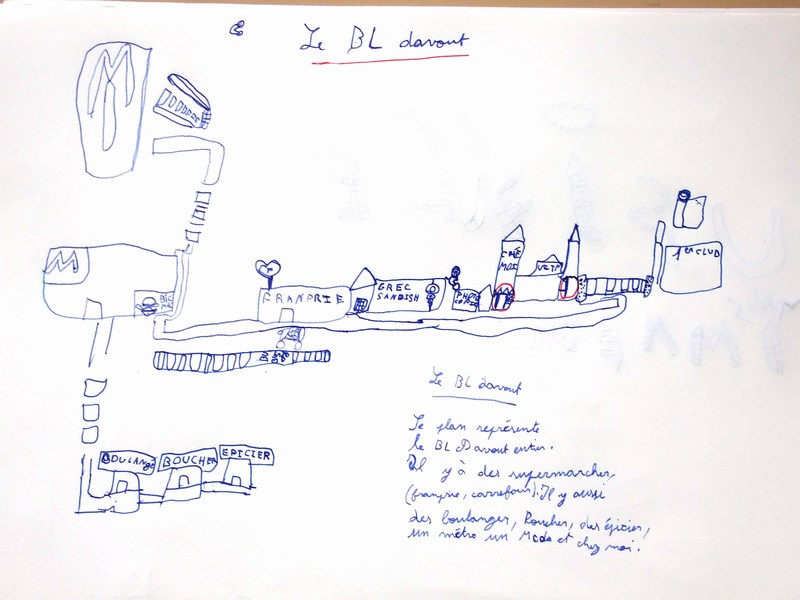 Le BL davout
M
M
FRANPRIE
GREC
SANDISH
CHÉ
MOI
VETM
1er CLUD
BOULANGÉ
BOUCHER
EPICIER
Le BL davout
Le plan représente
le BL Davout entier.
Il y à des supermarcher,
(franprie, carrefour). Il y aussi
des boulanger, Boucher, des épicier,
un métro un Mcdo et chez moi.